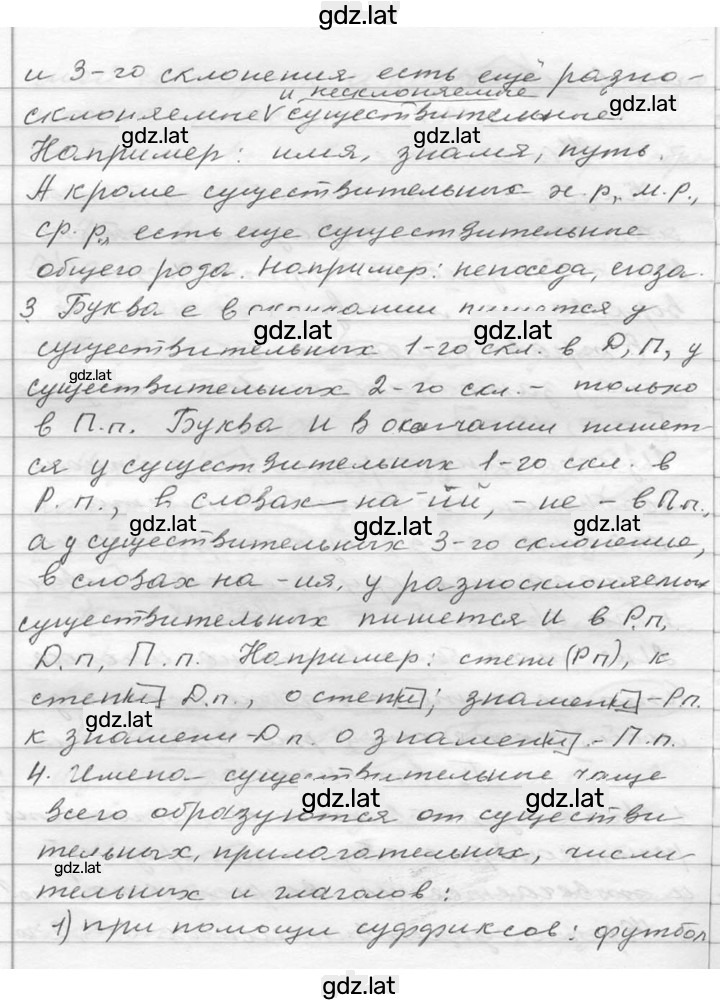 gdz.lat
и 3-го склонения есть ещё разно-
и несклоняемые
склоняемые V существительные.
gdz.lat gdz.lat
Например: имя, знамя, путь.
А кроме существительных ж.р., м.р.,
ср.р., есть еще существительные
общего рода. Например: непоседа,
3 Буква е в окончании пишется у
gdz.lat gdz.lat
существительных 1-го скл. в Д, П, у
gdz.lat
существительных 2-го скл. - только
в П.п. Буква и в окончании пишет-
ся у существительных 1-го скл. в
Р.п., в словах на -ий, -ие - в П.п.,
gdz.lat gdz.lat gdz.lat
а у существительных 3-го склонение,
в словах на -ия, у разносклоняемых
существительных пишется и в Р.п,
Д.п, П.п. Например: степи (Рп), к
степи Д.п., о степи; знамени - Рп.
gdz.lat
к знамени - Дп. о знамени. - П.п.
4. Имена существительные чаще
gdz.lat gdz.lat
всего образуются от существи
тельных, прилагательных, числи-
gdz.lat
тельных и глаголов:
1) при помощи суффиксов: футбол
gdz.lat